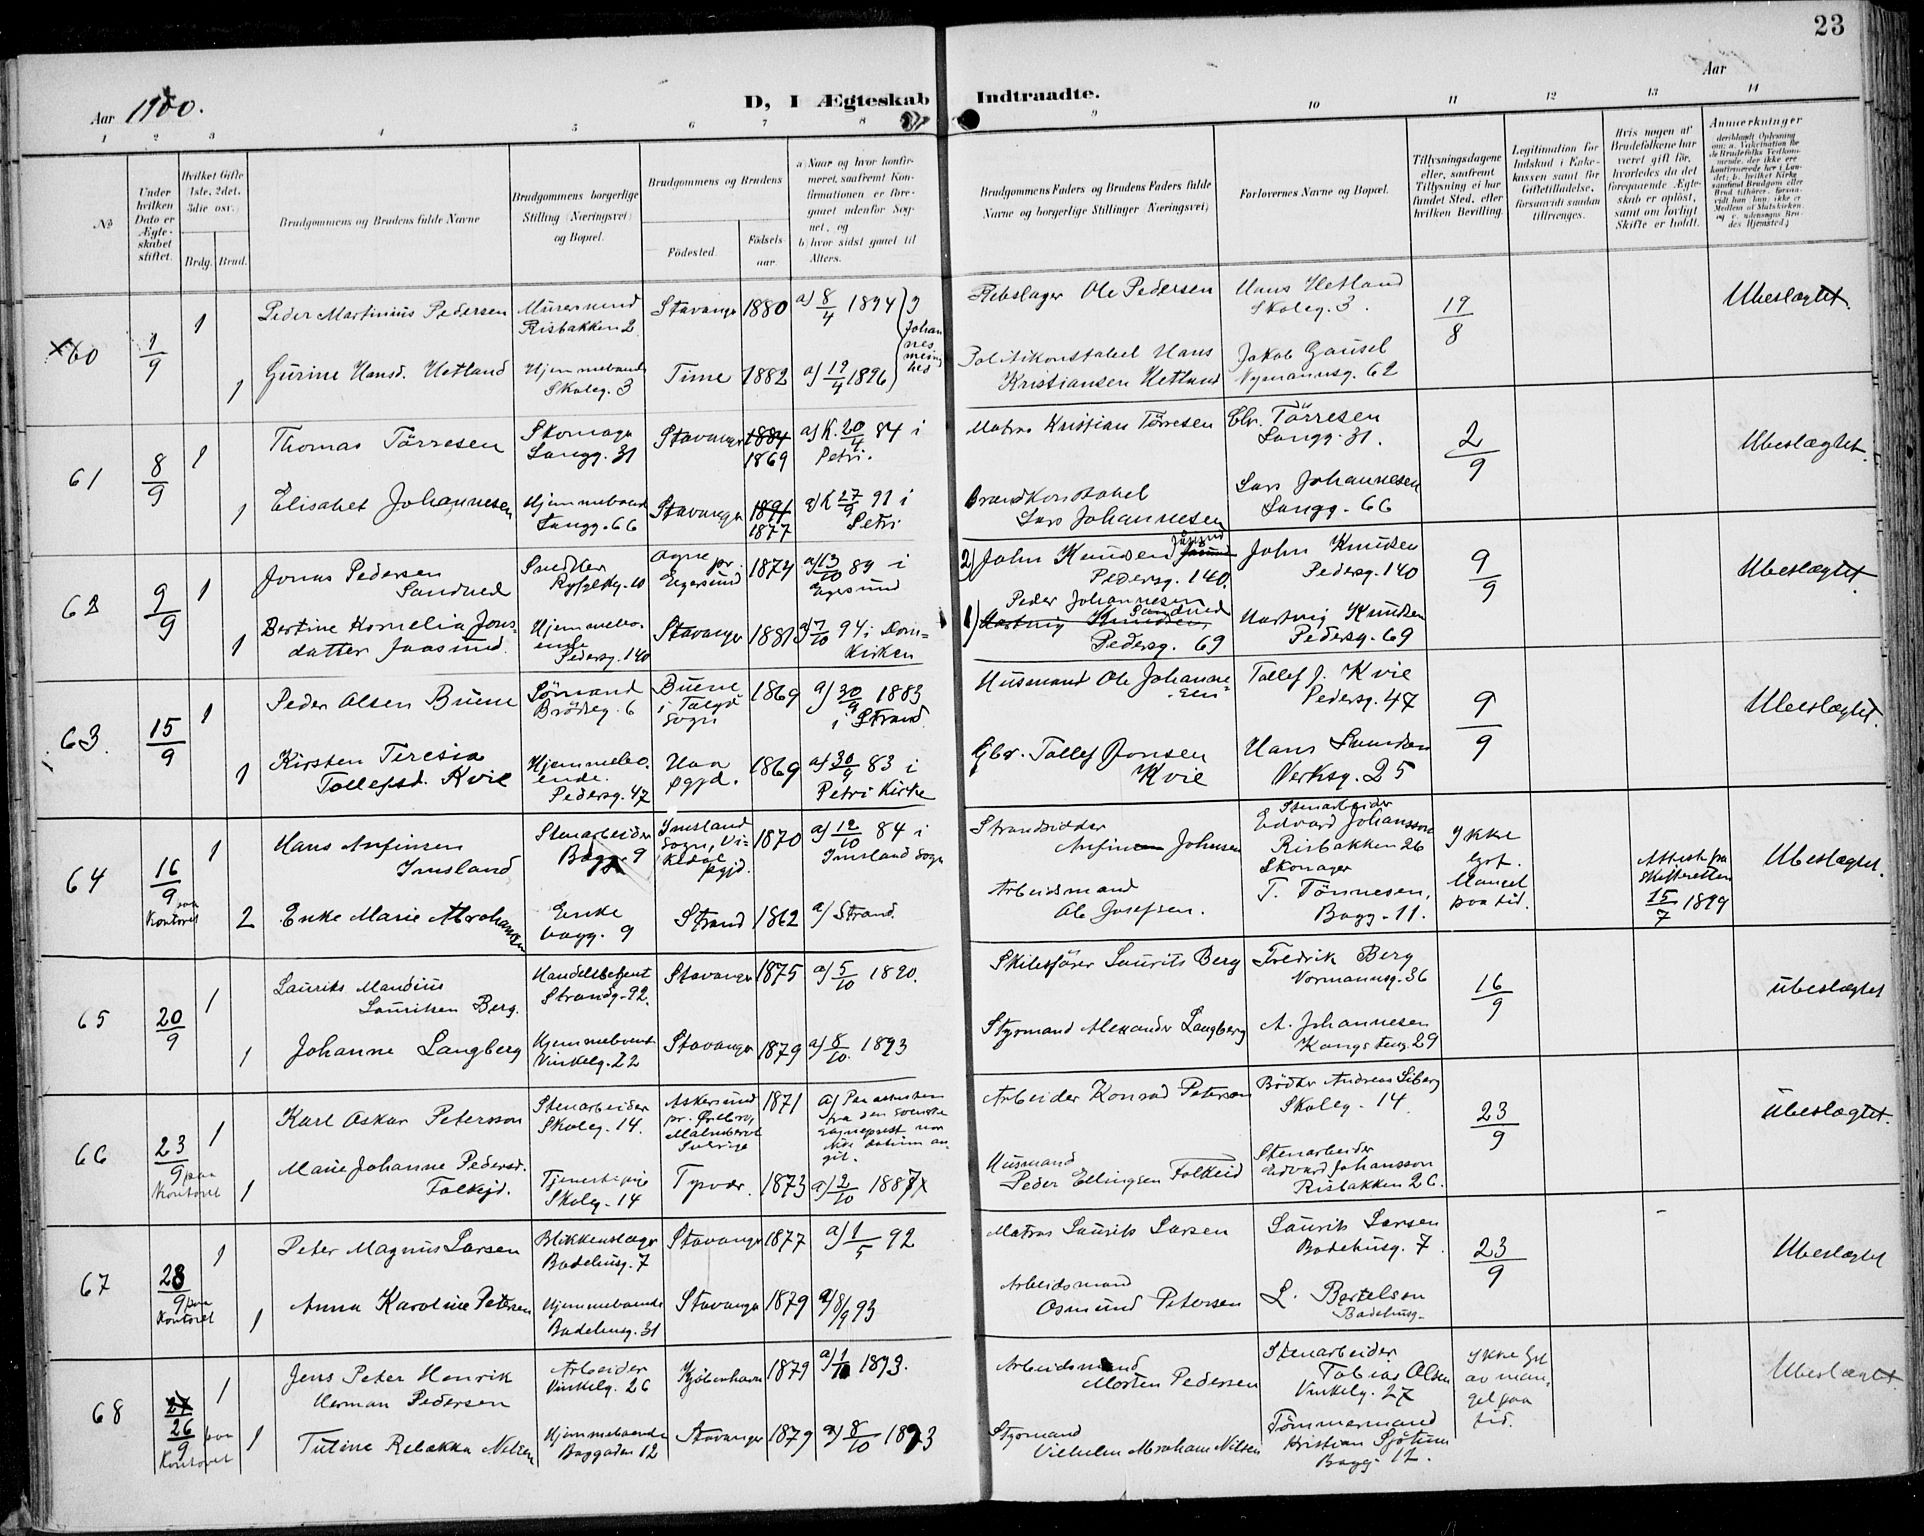 23
Aar 1900.
D, I Ægteskab Indtraadte.
Aar
1 2 3 4 5 6 7 8 9 10 11 12 13 14
No
Under hvilken Dato er Ægteskabet stiftet.
Hvilket Gifte 1ste, 2det, 3die osv.
Brdg. Brud.
Brudgommens og Brudens fulde Navne
Brudgommens borgerlige Stilling (Næringsvei) og Bopæl.
Brudgommens og Brudens
Fødested.
Fødsels aar.
a) Naar og hvor konfirmeret, saafremt Konfirmationen er foregaaet udenfor Sognet, og
b) hvor sidst gaaet til Alters.
Brudgommens Faders og Brudens Faders fulde Navne og borgerlige Stillinger (Næringsvei)
Forlovernes Navne og Bopæl.
Tillysningsdagene eller, saafremt Tillysning ei har fundet Sted, efter hvilken Bevilling.
Legitimation for Indskud i Enkekassen samt for Giftetilladelse, forsaavidt saadan tiltrænges.
Hvis nogen af Brudefolkene har været gift før, hvorledes da det foregaaende Ægteskab er opløst, samt om lovligt Skifte er holdt.
Anmerkninger
60
1/9
1
Peder Martinius Pedersen
Murersvend
Risbakken 2
Stavanger
1880
a) 8/4 1894
Rebslager Ole Pedersen
Hans Hetland
Skoleg. 3.
19/8
Ubeslægtet.
1
Gurine Hansd. Hetland
Hjemmeboende
Skoleg. 3
Time
1882
a) 19/4 1896
i Johannes menighed
Politikonstabel Hans
Kristiansen Hetland
Jakob Gausel
Nymannsg. 62
61
8/9
1
Thomas Törresen
Skomager
Langg. 31
Stavanger
1884
1869
a) K. 20/4 84 i
Petri.
Matros Kristian Törresen
Chr. Törresen
Langg. 31.
2/9
Ubeslægtet.
1
Elisabet Johannesen
Hjemmeboende
Langg. 66
Stavanger
1891
1877
a) K 27/9 91 i
Petri
Brandkonstabel
Lars Johannesen
Lars Johannesen
Langg. 66
62
9/9
1
Jonas Pedersen
Sandned
Snedker
Ryfylkeg. 10
Ogne pr.
Egersund
1874
a) 13/10 89 i
Egersund
2) John Knudsen
Pedersg. 140.
John Knudsen
Pedersg. 140
9/9
Ubeslægtet
1
Bertine Kornelia Jons-
datter Jaasund.
Hjemmeboende
Pedersg. 140
Stavanger
1881
a) 7/10 94 i Dom-
kirken
Peder Johannesen
Sandned
1) Hartvig Knudsen,
Pedersg. 69
Hartvig Knudsen
Pedersg. 69
63.
15/9
1
Peder Olsen Buene
Sömand
Brödreg. 6
Buene
i Talgö
sogn
1869
a) 30/9 1883
i Strand.
Husmand Ole Johanne-
sen
Tollef J. Kvie
Pedersg. 47
9/9
Ubeslægtet.
1
Kirsten Teresia
Tollefsd. Kvie
Hjemmebo-
ende.
Pedersg. 47
Haa
pgjd.
1869
a) 30/9 83 i
Petri Kirke
Gbr. Tollef Jonsen
Kvie
Hans
Verksg. 25
64
16/9 paa
Kontoret
1
Hans Anfinsen
Imsland
Stenarbeider
Bagg. 9
Imsland
sogn, Vi-
kedal
pgjd.
1870
a) 12/10 84 i
Imsland sogn
Strandsidder
Anfin Johnsen
Stenarbeider
Edvard Johansson
Risbakken 26
Ikke
lyst.
Mangel
paa tid.
Attest fra
skifteretten
15/7 1899
Ubeslægtet.
2
Enke Marie Abrahamsen
Enke
bagg. 9
Strand
1862
a) Strand.
Arbeidsmand
Ole Josefsen.
Skomager
T. Tönnesen,
Bagg. 11.
65
20/9
1
Laurits Mandius
Lauritsen Berg.
Handelsbetjent
Strandg. 92.
Stavanger
1875
a) 5/10 1890.
Skibsförer Laurits Berg
Fredrik Berg
Normannsg. 36
16/9
ubeslægtet
1
Johanne Langberg
Hjemmeboende
Vinkelg. 22
Stavanger
1879
a) 8/10 1893
Styrmand Alexander Langberg
A. Johannesen
Kongsteng. 29
66
23/9 paa
Kontoret
1
Karl Oskar Petersson
Stenarbeider
Skoleg. 14.
Askersund
pr. Örebro,
Sverige
1871
Arbeider Konrad Peterson
Bödker Andreas Siberg
Skoleg. 14.
23/9
Ubeslægtet.
1
Marie Johanne Pedersd.
Falkejd.
Tjenestepige
Skoleg. 14
Tysvær.
1873
a) 2/10 1887
Husmand
Peder Ellingsen Falkeid
Stenarbeider
Edvard Johansson
Risbakken 26.
67
28/9 paa
Kontoret
1
Peter Magnus Larsen
Blikkenslager
Badehusg. 7
Stavanger
1877
a) 1/5 92
Matros Laurits Larsen
Laurits Larsen
Badehusg. 7
23/9
Ubeslægtet
1
Anna Karoline Petersen
Hjemmeboende
Badehusg. 31
Stavanger
1879
a) 8/9 93
Arbeidsmand
Osmund Petersen
L. Bertelsen
Badehusg.
68
26/9 paa
Kontoret
1
Jens Peter Henrik
Herman Pedersen
Arbeider
Vinkelg. 26
Kjöbenhavn
1879
a) 1/10 1893.
Arbeidsmand
Morten Pedersen
Stenarbeider
Tobias Olsen
Vinkelg. 27
Ikke lyst
av man-
gel paa
tid.
Ubeslægtet
1
Tutine Rebekka Nilsen
Hjemmeboende
Baggaden 12
Stavanger
1879
a) 8/10 1893
Styrmand
Vilhelm Abraham Nilsen
Tömmermand
Kristian Sjötun
Bagg. 12.